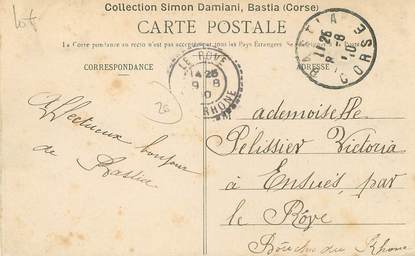 Collection Simon Damiani, Bastia (Corse)
lot
CARTE POSTALE
La Corre pondance au recto n'est pas acceptée par tous les Pays Etrangers
CORRESPONDANCE
ADRESSE
BASTIA
11 25
8 -8
10
CORSE
LE ROVE
14 25
9 -8
10
RHONE
20
Affectueux bonjour
de Bastia
ademoiselle
Pelissier Victoria
à Ensuès, par
le Rôve
Bouches du Rhône